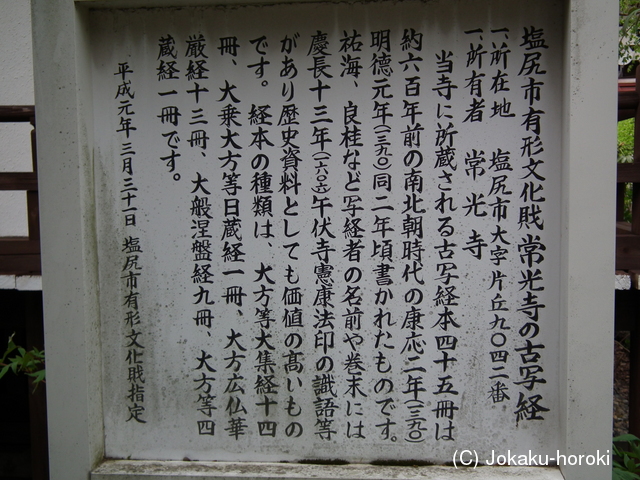 塩尻市有形文化財 常光寺の古写経
一、所在地　塩尻市大字片丘九〇四二番
一、所有者　常光寺
当寺に所蔵される古写経本四十五冊は
約六百年前の南北朝時代の康応二年(一三九〇)
明徳元年(一三九〇)同二年頃書かれたものです。
祐海、良桂など写経者の名前や巻末には
慶長十三年(一六〇八)午伏寺憲康法印の識語等
があり歴史資料としても価値の高いもの
です。経本の種類は、大方等大集経十四
冊、大乗大方等日蔵経一冊、大方広仏華
厳経十三冊、大般涅盤経九冊、大方等四
蔵経一冊です。
平成元年三月三十一日 塩尻市有形文化財指定
(C) Jokaku-horoki